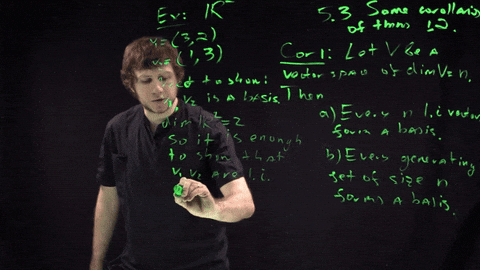 Ex: R²
v₁ = (3,2)
v₂ = (1,3)
to show:
v₂ is a basis.
dim R² = 2
so it is enough
to show that
v₁ v₂ are l.i.
5.3. Some corollaries
of thms 1,2.
Cor 1: Let V be a
vector space of dim V = n.
Then
a) Every n l.i vectors
form a basis.
b) Every generating
set of size n
forms a basis.